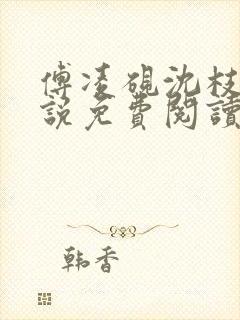 傅凌砚沈枝
說免費閱讀
韩香